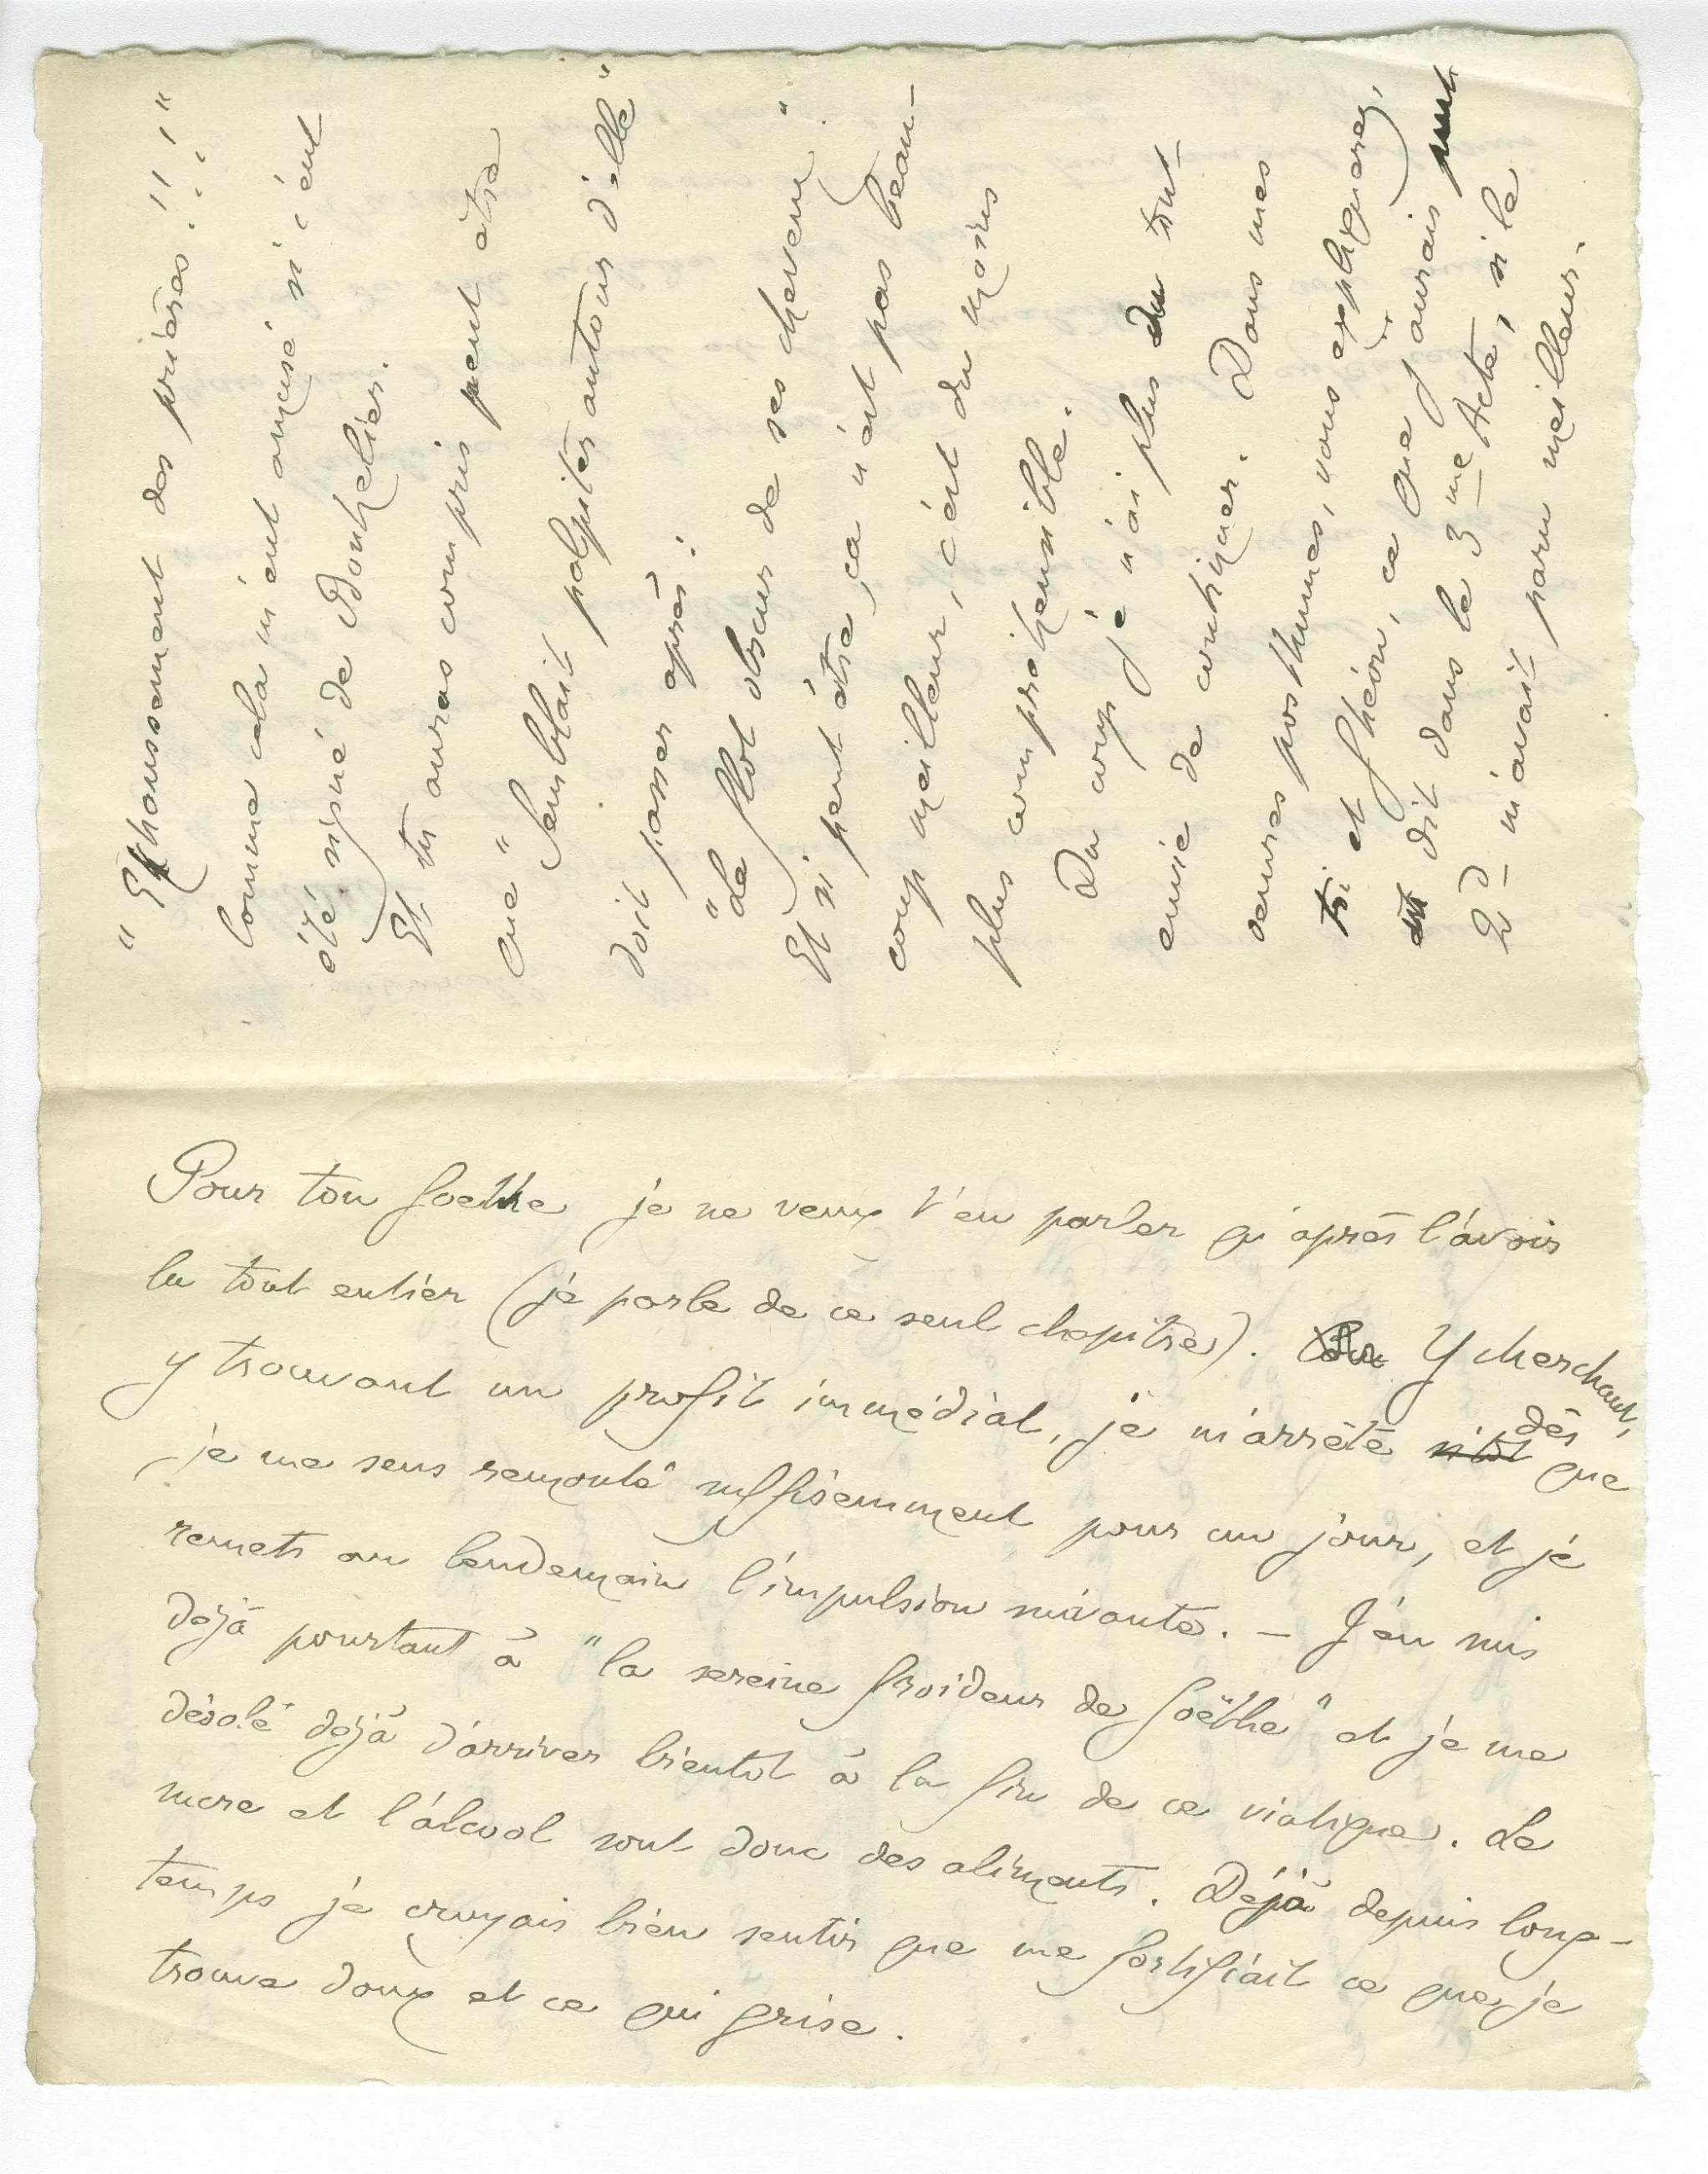 "Exhaussement des prières!!!"
Comme cela m'eut amusé si c'eut
été signé de Bouhelier.
Et tu auras compris peut être
que "Semblait palpiter autour d'elle"
doit passer après:
"Le flot obscur de ses cheveux"
Et si peut être, ça n'est pas beau-
coup meilleur, c'est du moins
plus compréhensible.
Du coup je n'ai plus du tout
envie de continuer. Dans mes
œuvres posthumes, vous expliquerez,
toi et Ghéon, ce que j'aurais
dit dans le 3me Acte, si le
2d m'avait paru meilleur.
Pour ton Goethe je ne veux t'en parler qu'après l'avoir
lu tout entier (je parle de ce seul chapitre). Y cherchant,
y trouvant un profit immédiat, je m'arrête sitôt dès que
je me sens remonté suffisemment pour un jour, et je
remets au lendemain l'impulsion suivante. – J'en suis
déjà pourtant à "la sereine froideur de Goëthe" et je me
désole déjà d'arriver bientôt à la fin de ce viatique. Le
sucre et l'alcool sont donc des aliments. Déjà depuis long-
temps je croyais bien sentir que me fortifiait ce que je
trouve doux et ce qui grise.